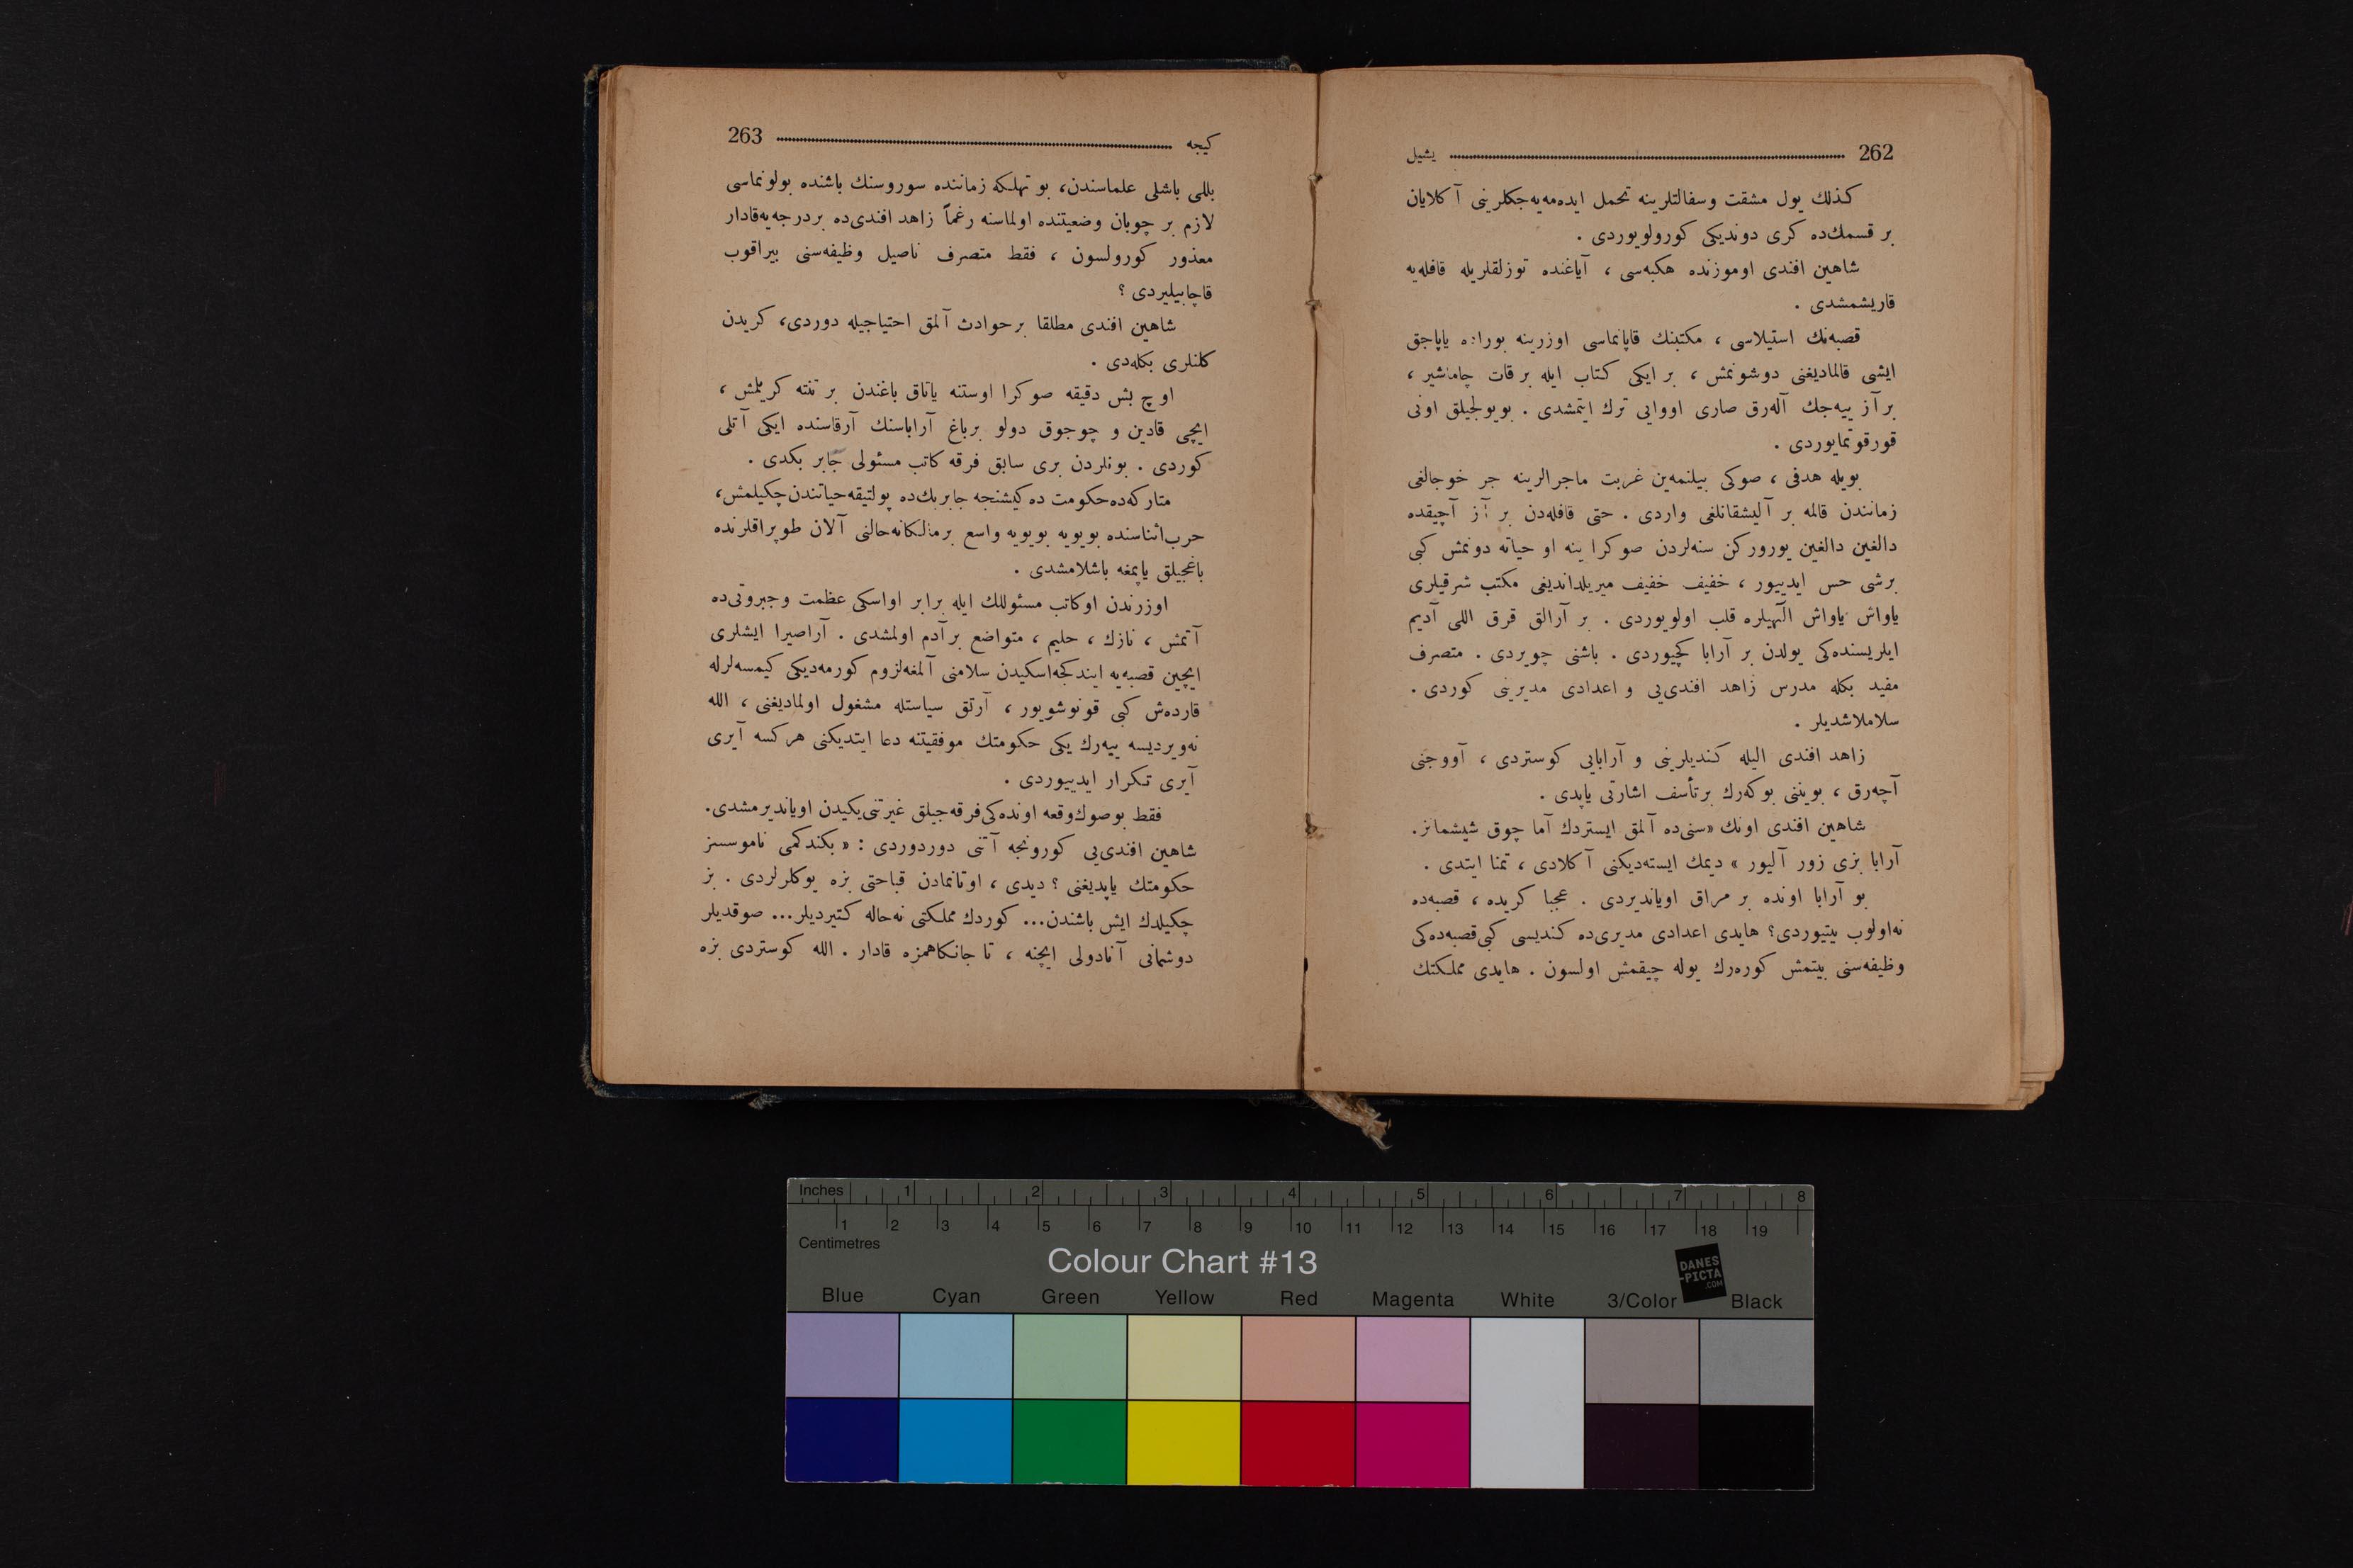 262 يشيل
كذلك يول مشقت وسفالتلرينه تحمل ايده‌مه‌يه‌جكلرينى آكلايان
بر قسمك‌ده كرى دونديكى كورولويوردى .
شاهين افندى اوموزنده هكبه‌سى ، آياغنده توزلقلريله قافله‌يه
قاريشمشدى .
قصبه‌نك استيلاسى ، مكتبنك قاپانماسى اوزرينه بوراده ياپاجق
ايشى قالماديغنى دوشونمش ، بر ايكى كتاب ايله بر قات چاماشير ،
بر آز ييه‌جك آله‌رق صارى اووايى ترك ايتمشدى . بويولجيلق اونى
قورقوتمايوردى .
بويله هدفى ، صوكى بيلنمه‌ين غربت ماجرالرينه جر خوجالغى
زمانندن قالمه بر آليشقانلغى واردى . حتى قافله‌دن بر آز آچيقده
دالغين دالغين يوروركن سنه‌لردن صوكرا ينه او حياته دونمش كبى
برشى حس ايدييور ، خفيف خفيف ميريلدانديغى مكتب شرقيلرى
ياواش ياواش آلهيلره قلب اولويوردى . بر آرالق قرق اللى آديم
ايلريسنده‌كى يولدن بر آرابا كچيوردى . باشنى چويردى . متصرف
مفيد بكله مدرس زاهد افندى‌يى و اعدادى مديرينى كوردى .
سلاملاشديلر .
زاهد افندى اليله كنديلرينى و آرابايى كوستردى ، آووجنى
آچه‌رق ، بويننى بوكه‌رك برتأسف اشارتى ياپدى .
شاهين افندى اونك «سنى‌ده آلمق ايستردك آما چوق شيشمانز.
آرابا بزى زور آليور » ديمك ايسته‌ديكنى آكلادى ، تمنا ايتدى .
بو آرابا اونده بر مراق اويانديردى . عجبا كريده ، قصبه‌ده
نه‌اولوب بيتيوردى؟ هايدى اعدادى مديرى‌ده كنديسى كبى‌قصبه‌ده‌كى
وظيفه‌سنى بيتمش كوره‌رك يوله چيقمش اولسون . هايدى مملكتك
كيجه 263
بللى باشلى علماسندن، بو تهلكه زماننده سوروسنك باشنده بولونماسى
لازم بر چوبان وضعيتنده اولماسنه رغماً زاهد افندى‌ده بردرجه‌يه‌قادار
معذور كورولسون ، فقط متصرف ناصيل وظيفه‌سنى بيراقوب
قاچابيليردى ؟
شاهين افندى مطلقا برحوادث آلمق احتياجيله دوردى، كريدن
كلنلرى بكله‌دى .
اوچ بش دقيقه صوكرا اوستنه ياتاق باغندن بر تنته كريلمش ،
ايچى قادين و چوجوق دولو برباغ آراباسنك آرقاسنده ايكى آتلى
كوردى . بونلردن برى سابق فرقه كاتب مسئولى جابر بكدى .
متاركه‌ده‌حكومت ده‌كيشنجه جابربك‌ده پولتيقه‌حياتندن‌چكيلمش،
حرب‌اثناسنده بويويه بويويه واسع برمالكانه‌حالنى آلان طوپراقلرنده
باغجيلق ياپمغه باشلامشدى .
اوزرندن اوكاتب مسئوللك ايله برابر اواسكى عظمت وجبروتى‌ده
آتمش ، نازك ، حليم ، متواضع برآدم اولمشدى . آراصيرا ايشلرى
ايچين قصبه‌يه ايندكجه‌اسكيدن سلامنى آلمغه‌لزوم كورمه‌ديكى كيمسه‌لرله
قارده‌ش كبى قونوشويور ، آرتق سياستله مشغول اولماديغنى ، الله
نه‌ويرديسه ييه‌رك يكى حكومتك موفقيتنه دعا ايتديكنى هركسه آيرى
آيرى تكرار ايدييوردى .
فقط بوصوك‌وقعه اونده‌كى‌فرقه‌جيلق غيرتنى‌يكيدن اويانديرمشدى.
شاهين افندى‌يى كورونجه آتنى دوردوردى : « بكندكمى ناموسسز
حكومتك ياپديغنى ؟ ديدى ، اوتانمادن قباحتى بزه يوكلرلردى . بز
چكيلدك ايش باشندن... كوردك مملكتى نه‌حاله كتيرديلر... صوقديلر
دوشمانى آنادولى ايچنه ، تا جانكاهمزه قادار . الله كوستردى بزه
Inches 1 2 3 4 5 6 7 8
1 2 3 4 5 6 7 8 9 10 11 12 13 14 15 16 17 18 19
Centimetres
Colour Chart #13
DANES
-PICTA
.COM
Blue Cyan Green Yellow Red Magenta White 3/Color Black